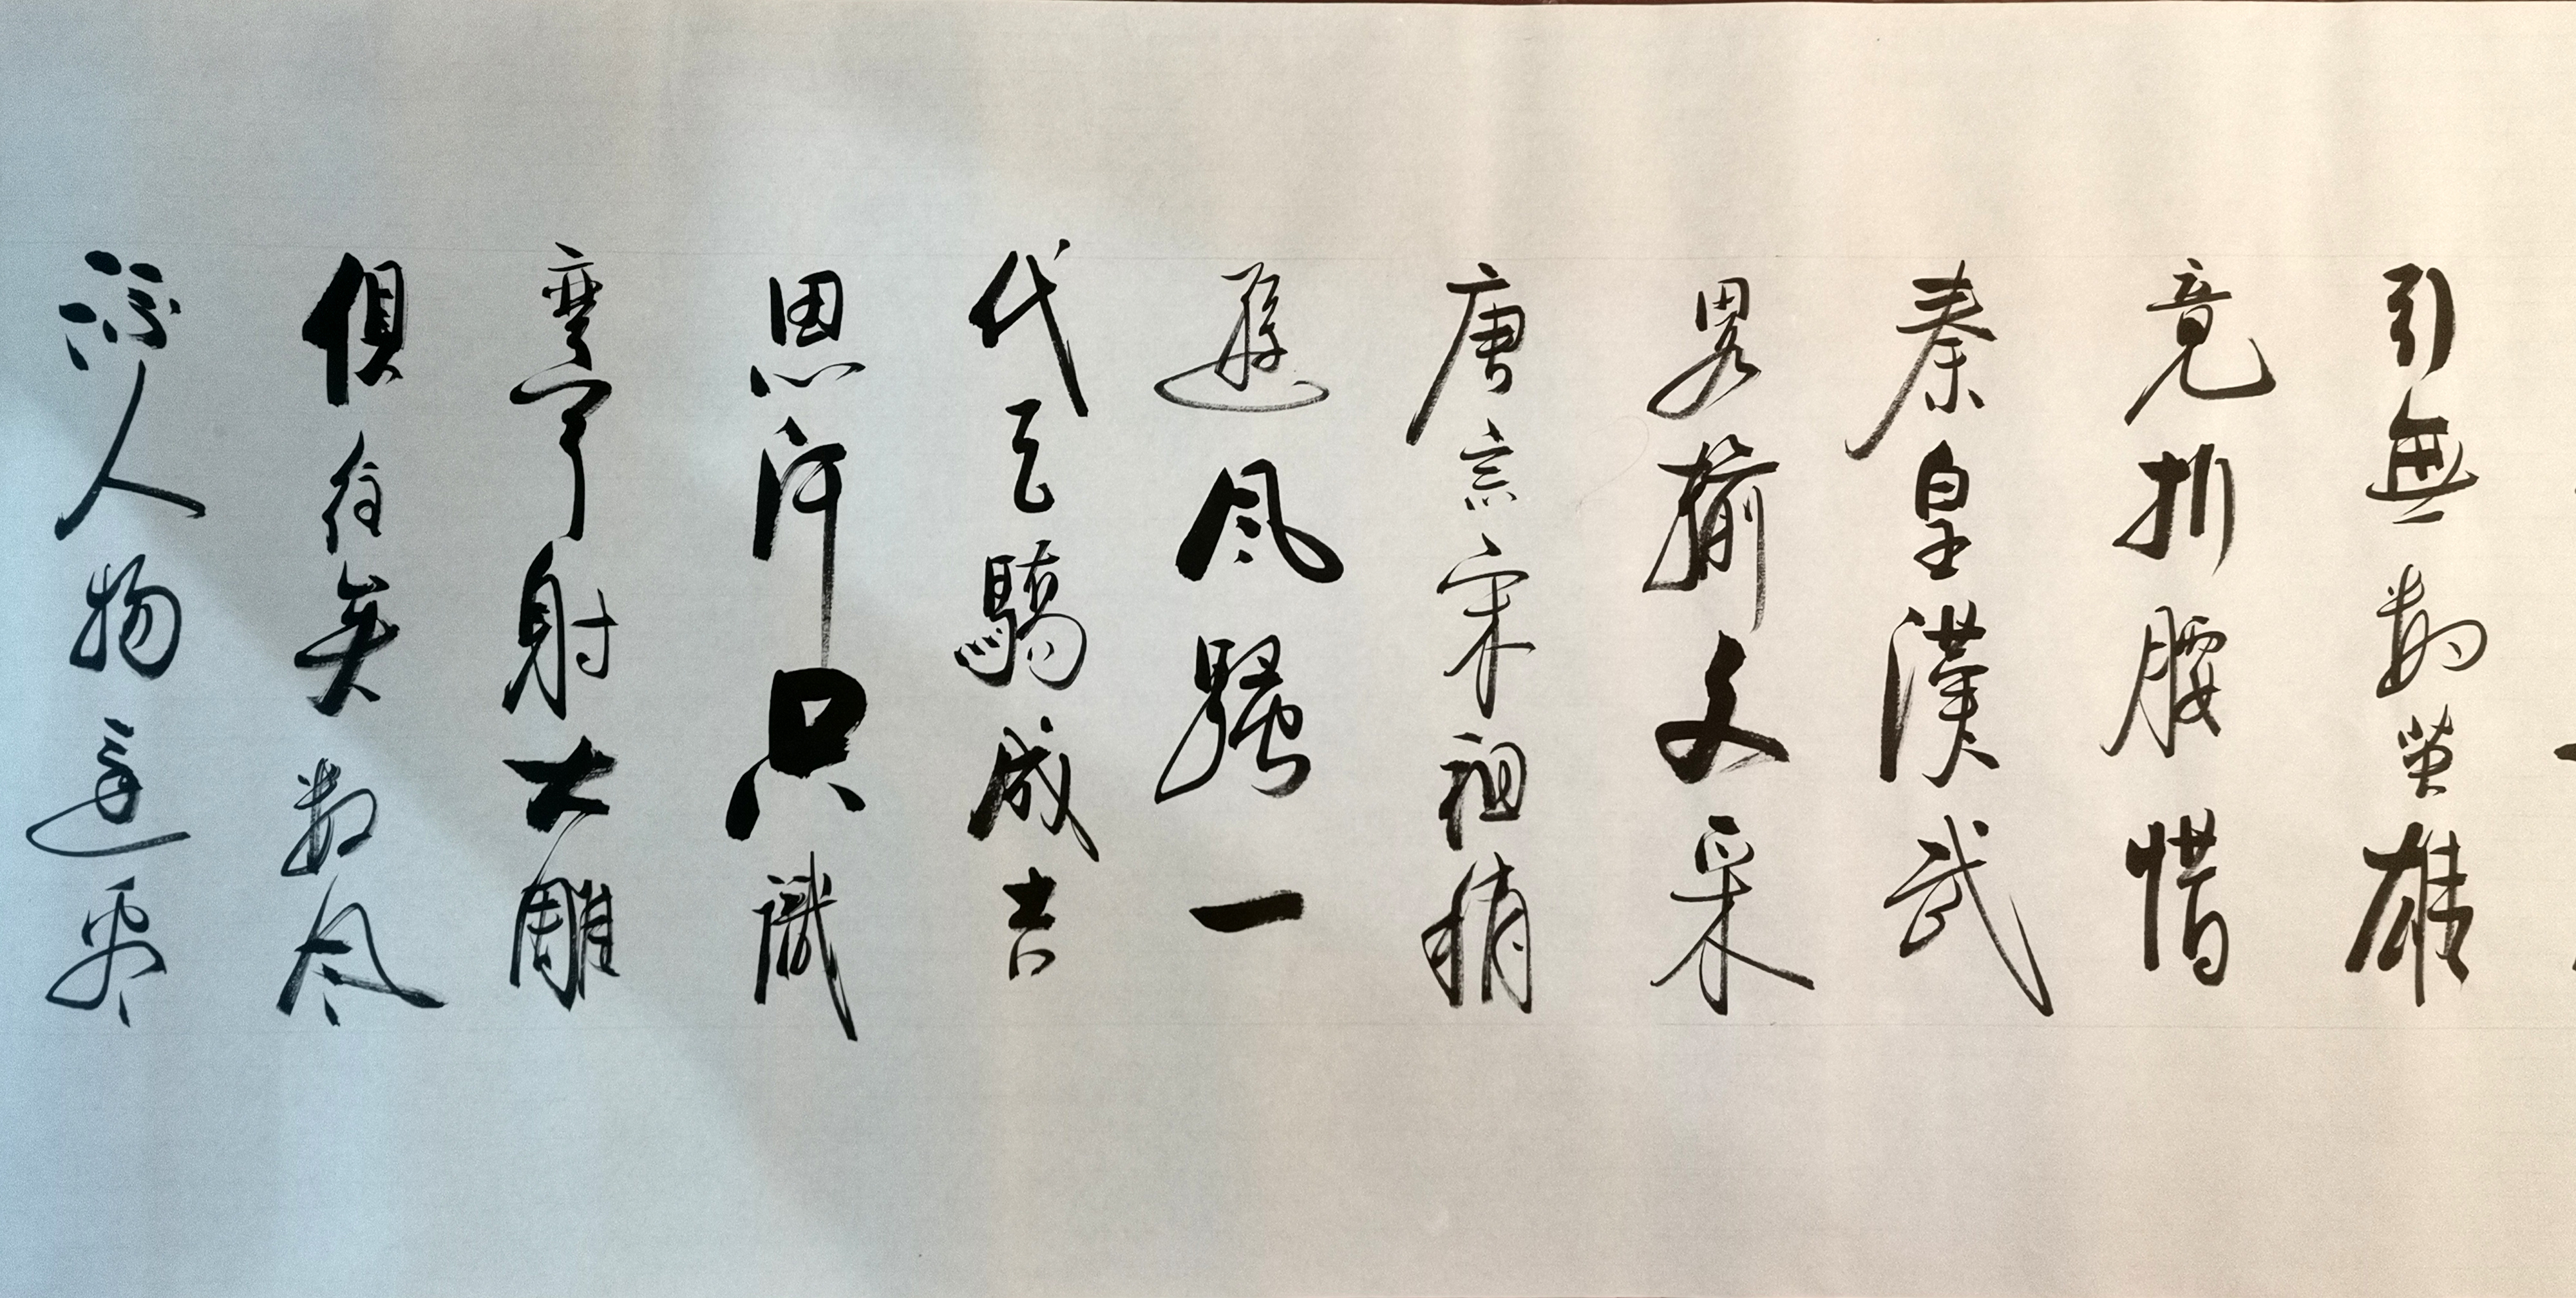 引無數英雄
竟折腰惜
秦皇漢武
畧揄文采
唐宗宋祖稍
遜風騷一
代天驕成吉
思汗只識
彎弓射大雕
俱往矣數风
流人物還看